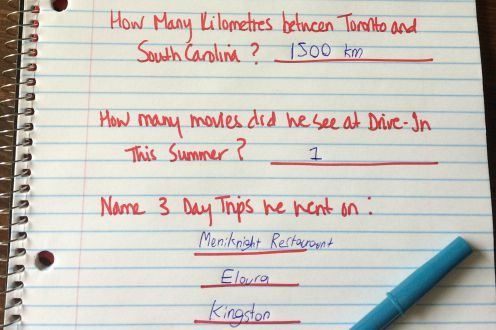 How Many Kilometres between Toronto and
South Carolina ? 1500 km
How many movies did we see at Drive-In
This Summer ? 1
Name 3 Day Trips we went on :
Meniknight Restauraont
Eloura
Kingston